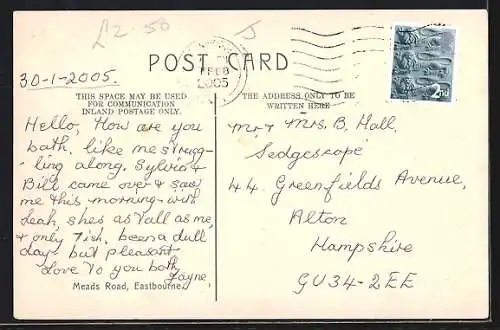 £2-50
POST CARD
FEB
2005
2nd
30-1-2005.
THIS SPACE MAY BE USED
FOR COMMUNICATION
INLAND POSTAGE ONLY.
THE ADDRESS ONLY TO BE
WRITTEN HERE
Hello, How are you
both, like me strugg-
ling along. Sylvia &
Bill came over & saw
me & this morning with
Leah, shes as tall as me,
& only 7ish, been a dull
day but pleasant
Love to you both
Jayne,
Meads Road, Eastbourne
Mr & Mrs. B. Hall,
Sedgescope
44 Greenfields Avenue,
Alton
Hampshire
GU34-2EE